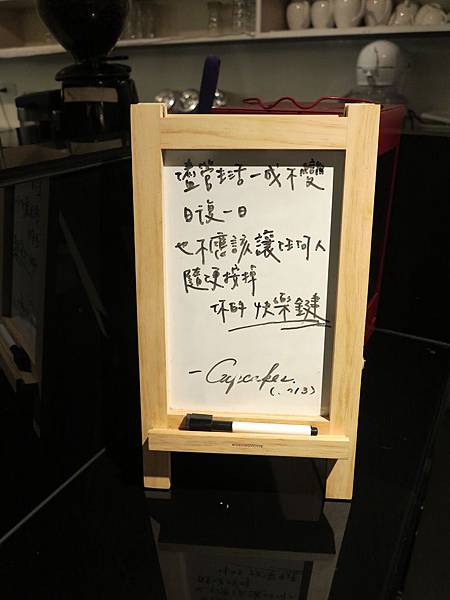 儘管生活一成不變
日復一日
也不應該讓任何人
隨便按掉
你的 快樂鍵
- Cupcakes.